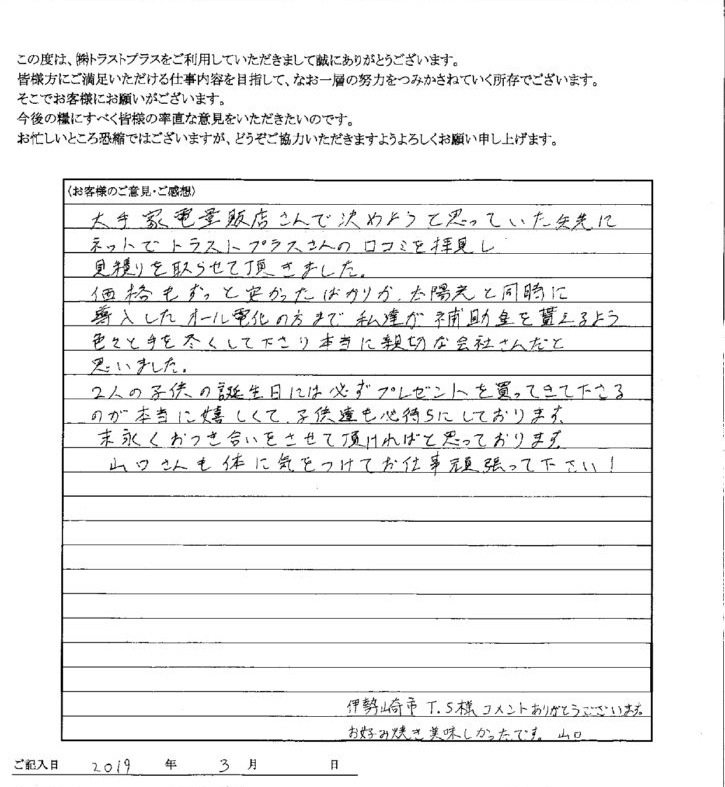 この度は、㈱トラストプラスをご利用していただきまして誠にありがとうございます。
皆様方にご満足いただける仕事内容を目指して、なお一層の努力をつみかさねていく所存でございます。
そこでお客様にお願いがございます。
今後の糧にすべく皆様の率直な意見をいただきたいのです。
お忙しいところ恐縮ではございますが、どうぞご協力いただきますようよろしくお願い申し上げます。
(お客様のご意見・ご感想)
大手家電量販店さんで決めようと思っていた矢先に
ネットでトラストプラスさんの口コミを拝見し
見積りを取らせて頂きました。
価格もずっと安かったばかりか、太陽光と同時に
導入したオール電化の方まで私達が補助金を貰えるよう
色々と手を尽くして下さり本当に親切な会社さんだと
思いました。
2人の子供の誕生日には必ずプレゼントを買ってきて下さる
のが本当に嬉しくて、子供達も心待ちにしております。
末永くおつき合いをさせて頂ければと思っております。
山口さんも体に気をつけてお仕事頑張って下さい!
伊勢崎市 T.S様 コメントありがとうございます。
お好み焼き美味しかったです。山口
ご記入日 2019 年 3 月 日